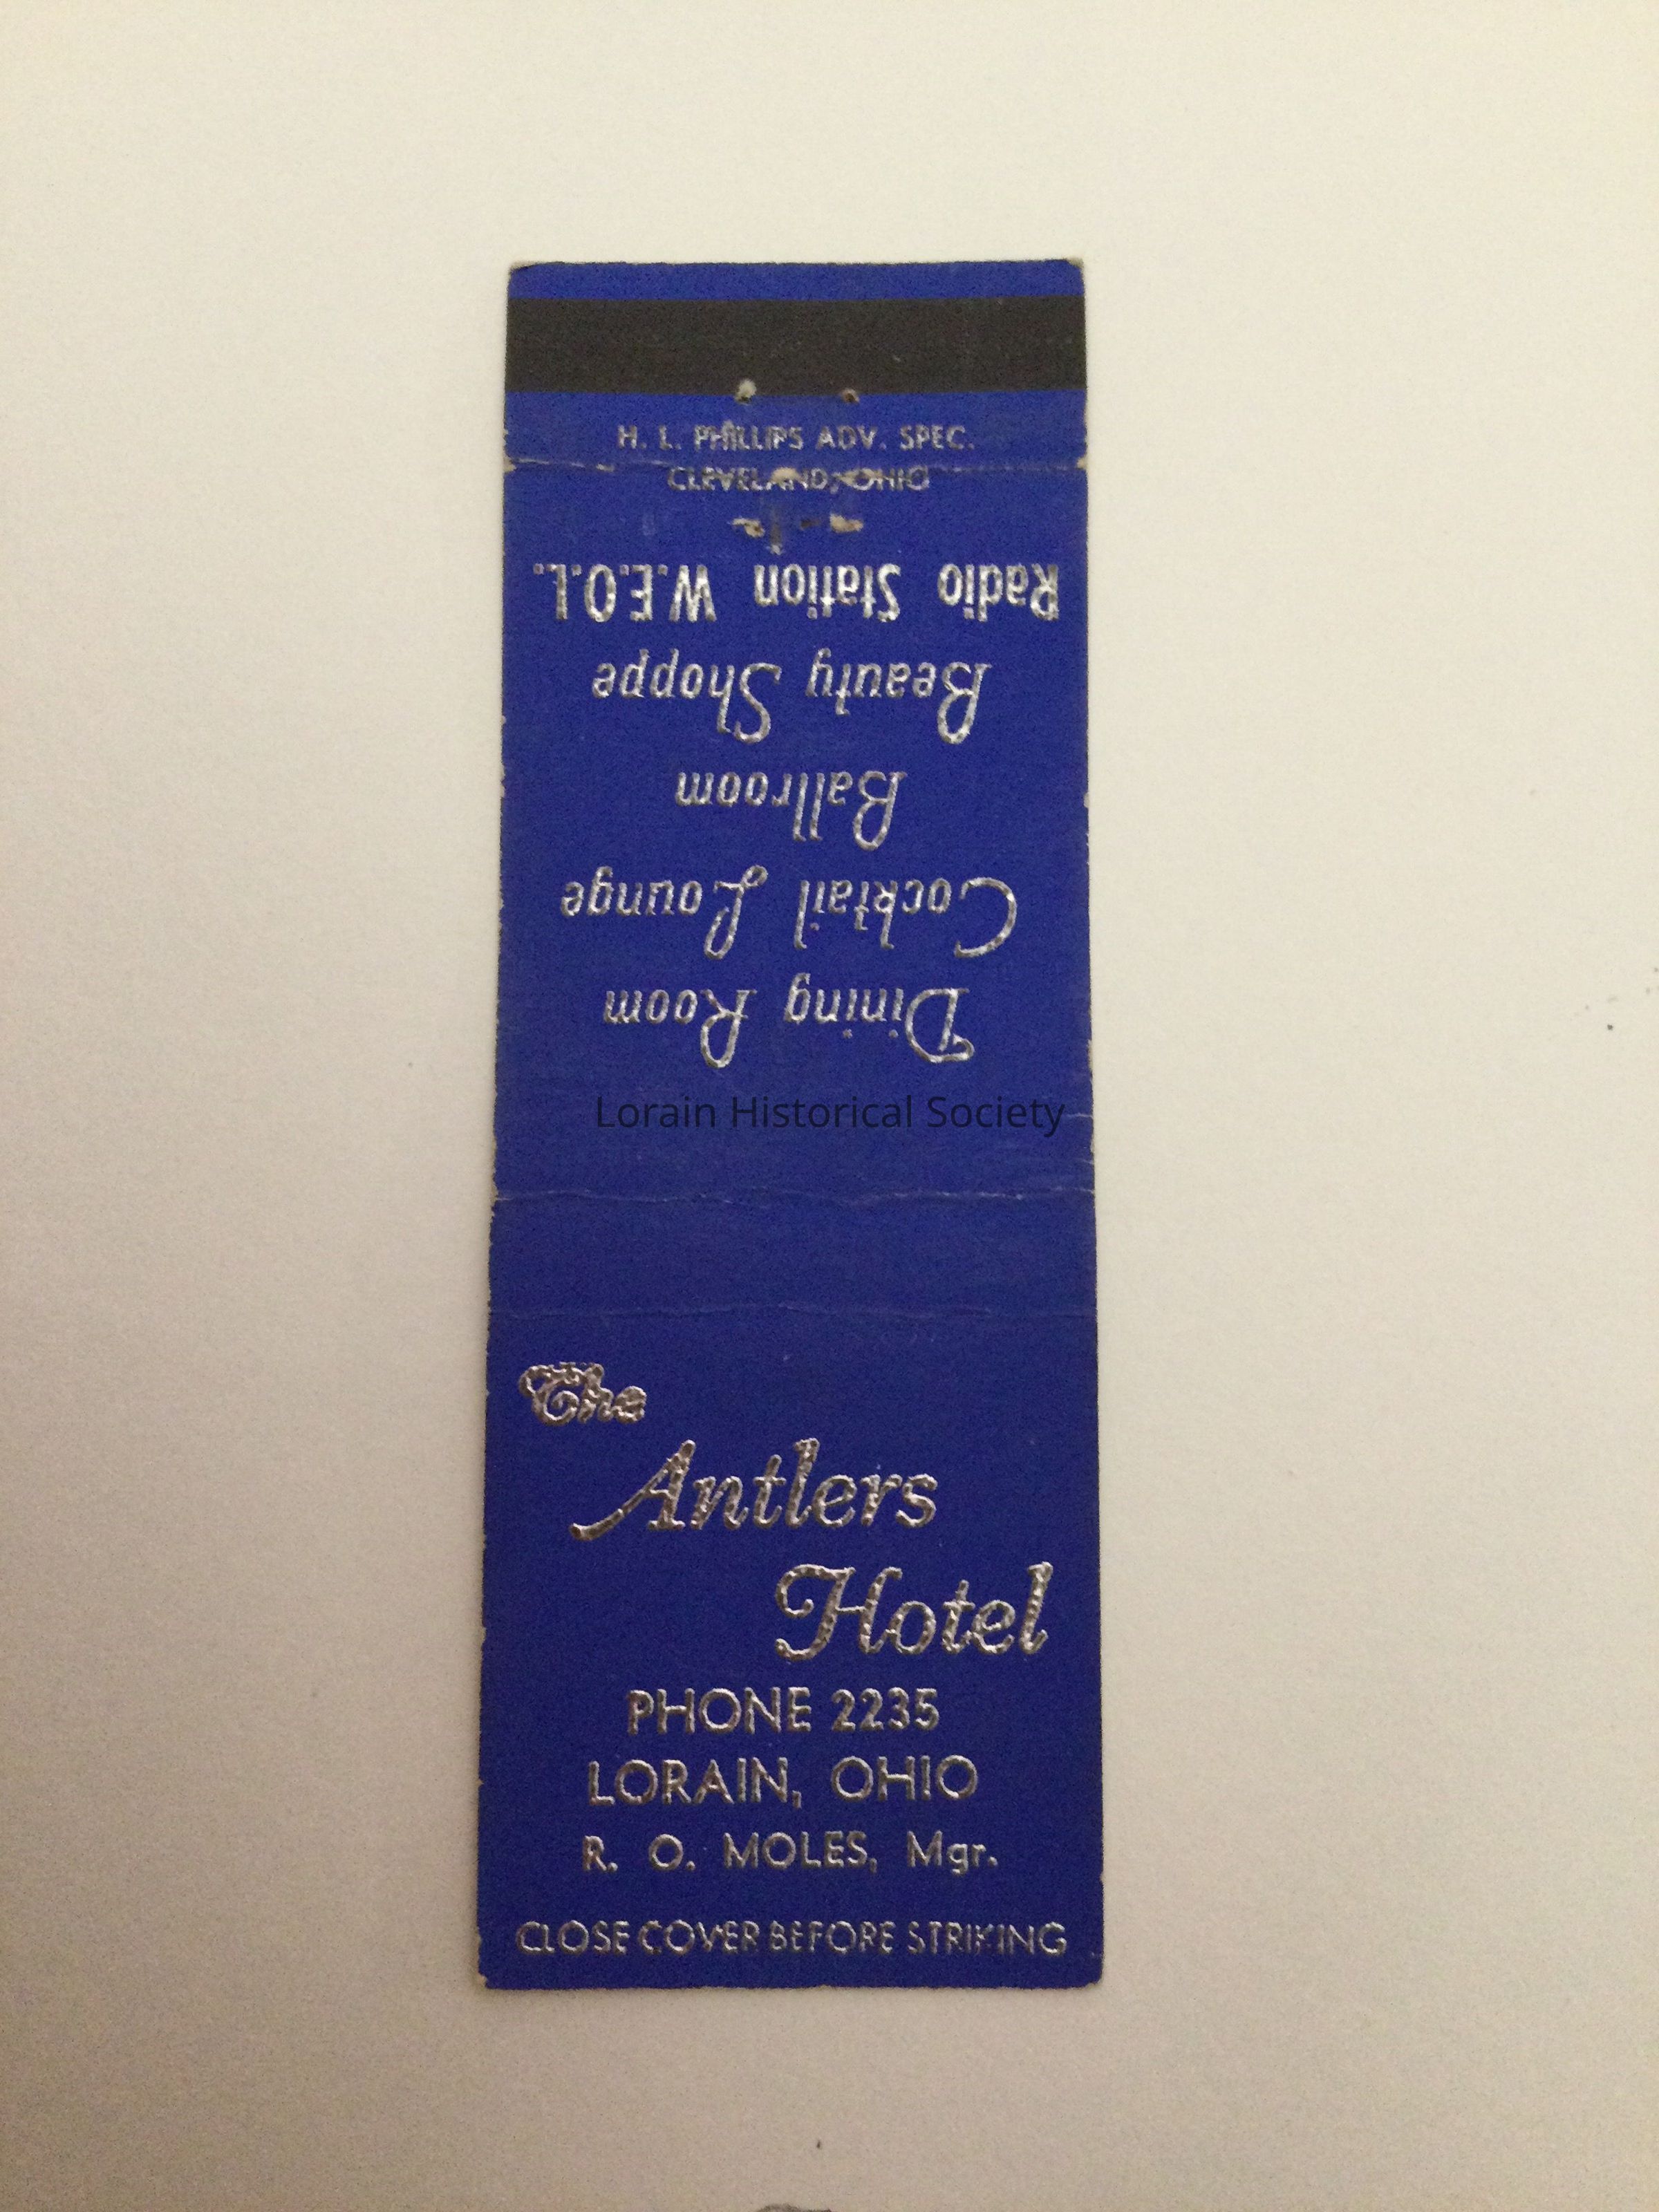 H. L. PHILLIPS ADV. SPEC.
CLEVELAND, OHIO
Dining Room
Cocktail Lounge
Ballroom
Beauty Shoppe
Radio Station W.E.O.L.
Lorain Historical Society
The
Antlers
Hotel
PHONE 2235
LORAIN, OHIO
R. O. MOLES, Mgr.
CLOSE COVER BEFORE STRIKING